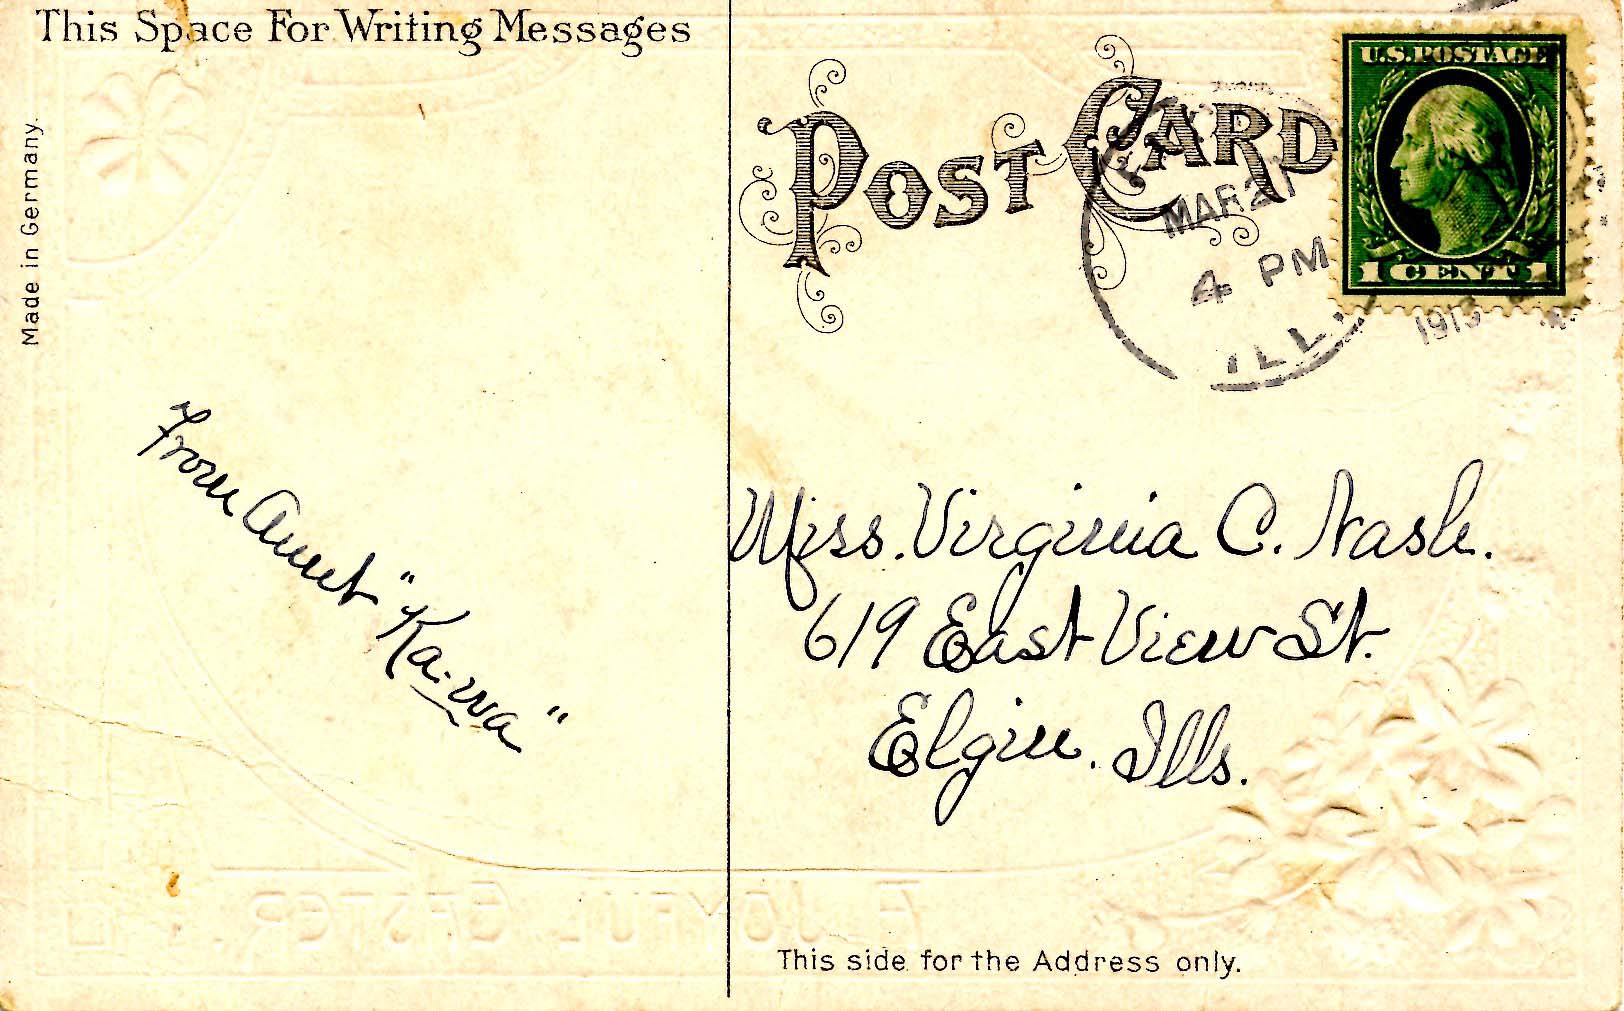 This Space For Writing Messages
Made in Germany.
POST CARD
U.S. POSTAGE
1 CENT 1
MAR 21
4 PM
1913
ILL.
From Aunt "Ka-wa"
Miss. Virginia C. Nash.
619 East View St.
Elgin. Ills.
A JOYFUL EASTER.
This side for the Address only.